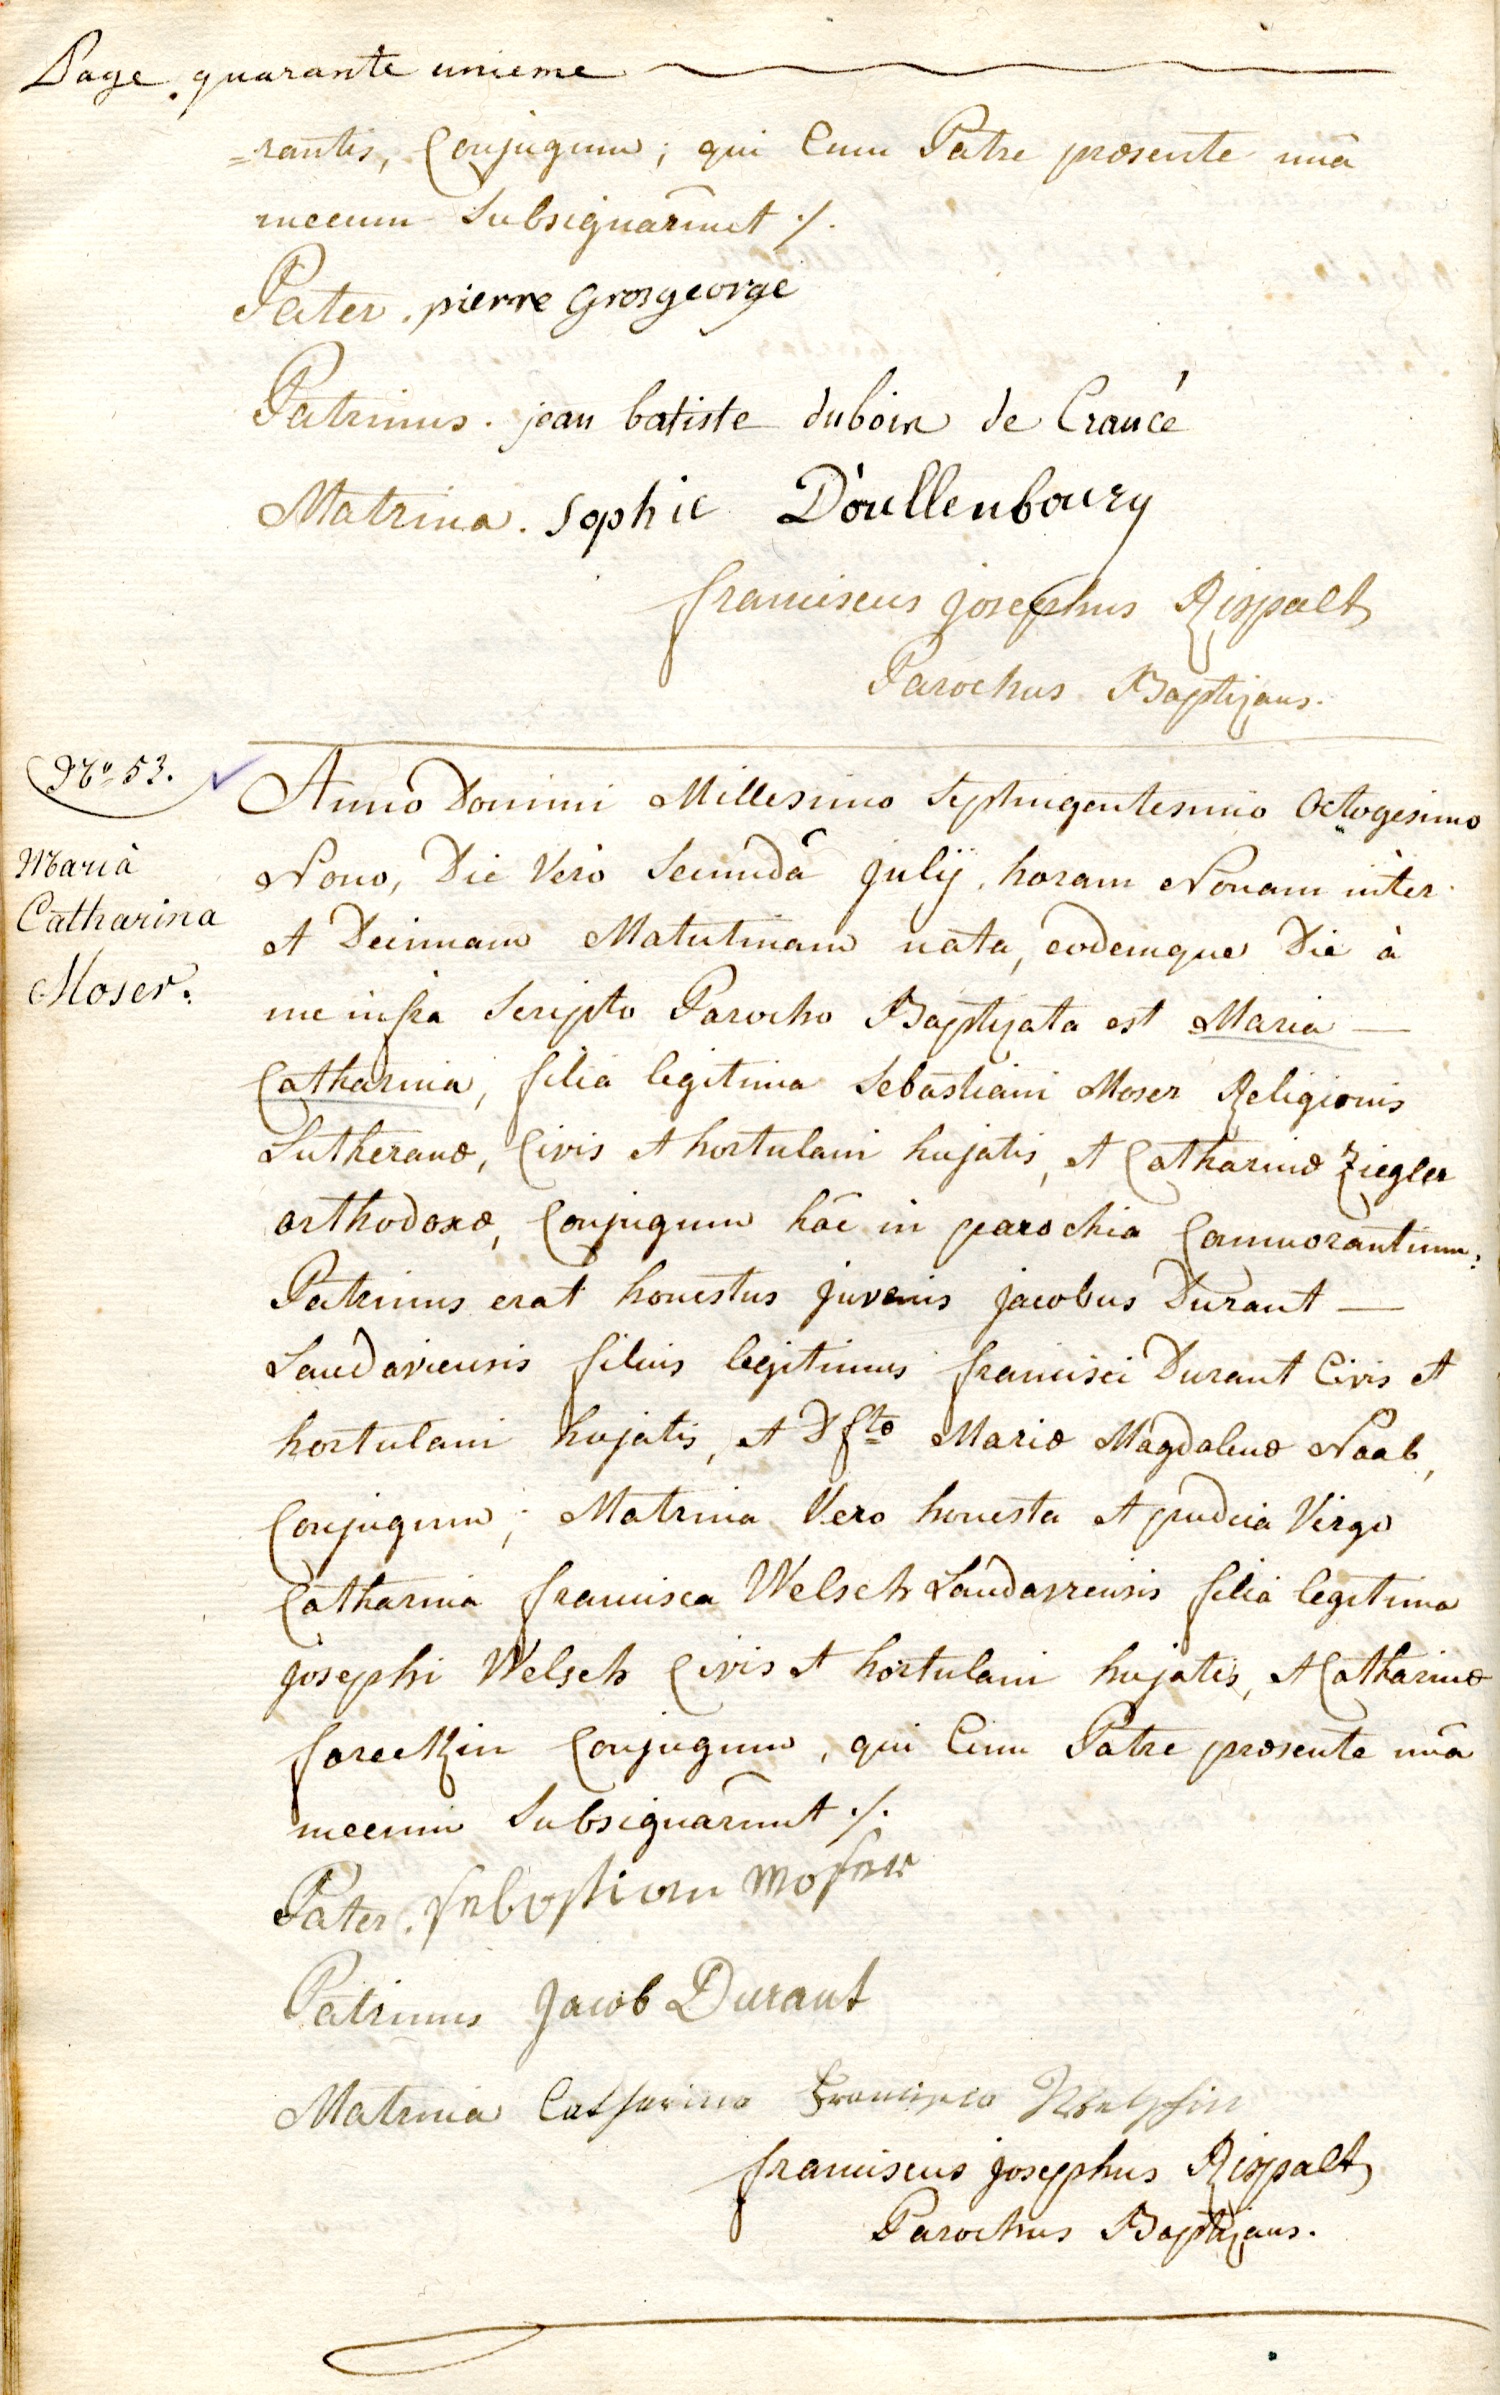 Page quarante unieme
=rantis, Conjugum; qui Cum Patre præsente unâ
mecum Subsignârunt ./.
Pater. pierre Grosgeorge
Patrinus. jean batiste dubois de Crancé
Matrina. Sophie D'oullenbourg
franciscus josephus Rispalt
Parochus Baptizans.
No. 53.
Maria
Catharina
Moser.
Anno Domini Millesimo Septingentesimo Octogesimo
Nono, Die Vero Secundâ julij, horam Nonam inter
et Decimam Matutinam nata, eodemque Die à
me infra Scripto Parocho Baptizata est Maria —
Catharina, filia legitima Sebastiani Moser Religionis
Lutheranæ, Civis et hortulani hujatis, et Catharinæ Ziegler
orthodoxæ, Conjugum hâc in parochia Commorantium:
Patrinus erat honestus juvenis jacobus Durant —
Landaviensis filius legitimus francisci Durant Civis et
hortulani hujatis, et Dftæ Mariæ Magdalenæ Naab,
Conjugum; Matrina Vero honesta et pudica Virgo
Catharina francisca Welsch Landaviensis filia legitima
josephi Welsch Civis et hortulani hujatis, et Catharinæ
Conjugum, qui Cum Patre præsente unâ
mecum Subsignârunt ./.
Pater. sebastian moser
Patrinus Jacob Durant
Matrina Catharina Francisca Welschin
franciscus josephus Rispalt
Parochus Baptizans.